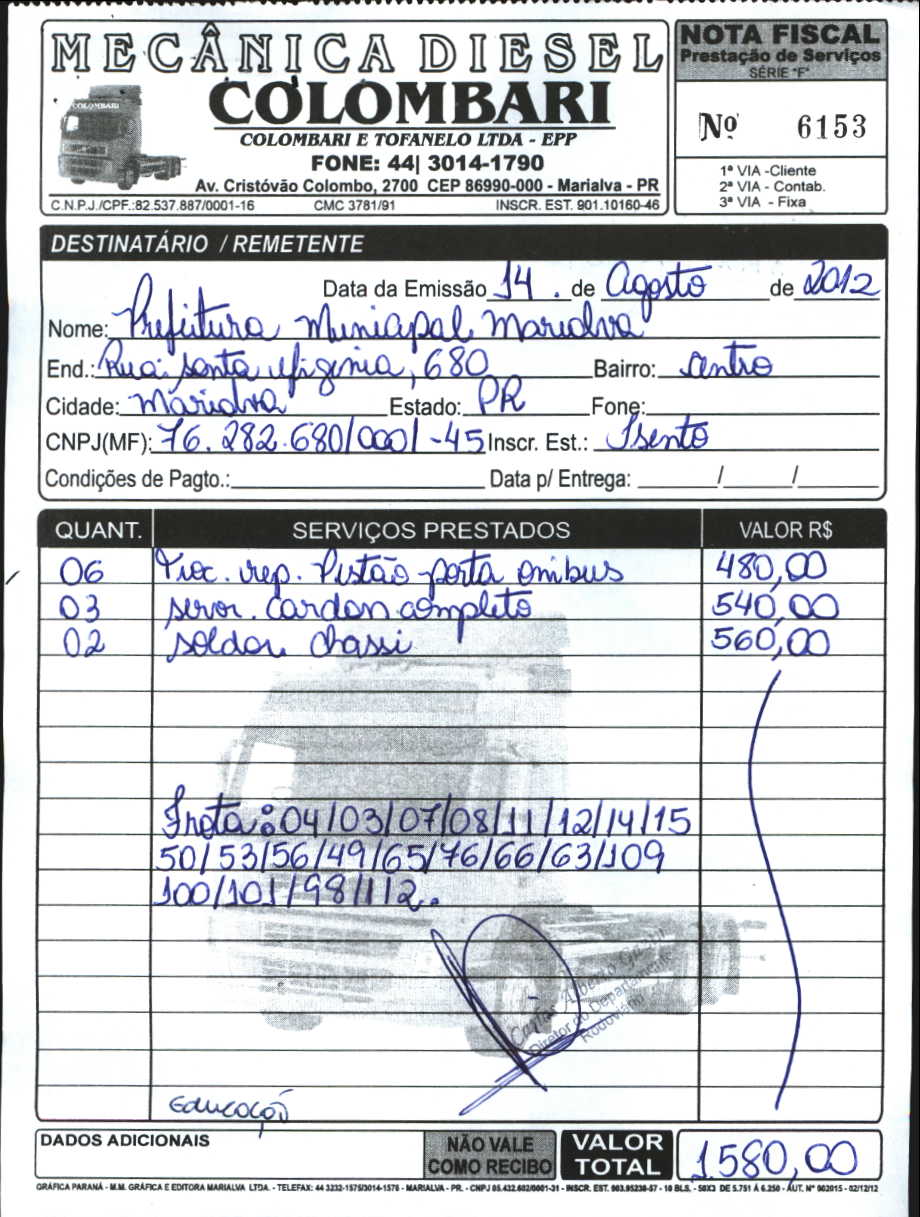 MECÂNICA DIESEL
COLOMBARI
COLOMBARI
COLOMBARI E TOFANELO LTDA - EPP
FONE: 44| 3014-1790
Av. Cristóvão Colombo, 2700 CEP 86990-000 - Marialva - PR
C.N.P.J./CPF.:82.537.887/0001-16 CMC 3781/91 INSCR. EST. 901.10160-46
NOTA FISCAL
Prestação de Serviços
SÉRIE "F"
Nº 6153
1ª VIA -Cliente
2ª VIA - Contab.
3ª VIA - Fixa
DESTINATÁRIO / REMETENTE
Data da Emissão 14 . de Agosto de 2012
Nome: Prefeitura Municipal Marialva
End.: Rua: Santa Efigenia, 680 Bairro: Centro
Cidade: Marialva Estado: PR Fone:
CNPJ(MF): 76.282.680/0001-45 Inscr. Est.: Isento
Condições de Pagto.: Data p/ Entrega: / /
QUANT. SERVIÇOS PRESTADOS VALOR R$
06 rep. Pistão porta onibus 480,00
03 cardan completo 540,00
02 soldar chassi 560,00
Frota: 04/03/07/08/11/12/14/15
50/53/56/49/65/76/66/63/109
100/101/98/112.
Diretor do Departamento
Rodoviário
Educação
DADOS ADICIONAIS
NÃO VALE
COMO RECIBO
VALOR
TOTAL
1580,00
GRÁFICA PARANÁ - M.M. GRÁFICA E EDITORA MARIALVA LTDA. - TELEFAX: 44 3232-1575/3014-1578 - MARIALVA - PR. - CNPJ 85.432.602/0001-31 - INSCR. EST. 903.95238-57 - 10 BLS. - 50X3 DE 5.751 À 6.250 - AUT. Nº 902015 - 02/12/12